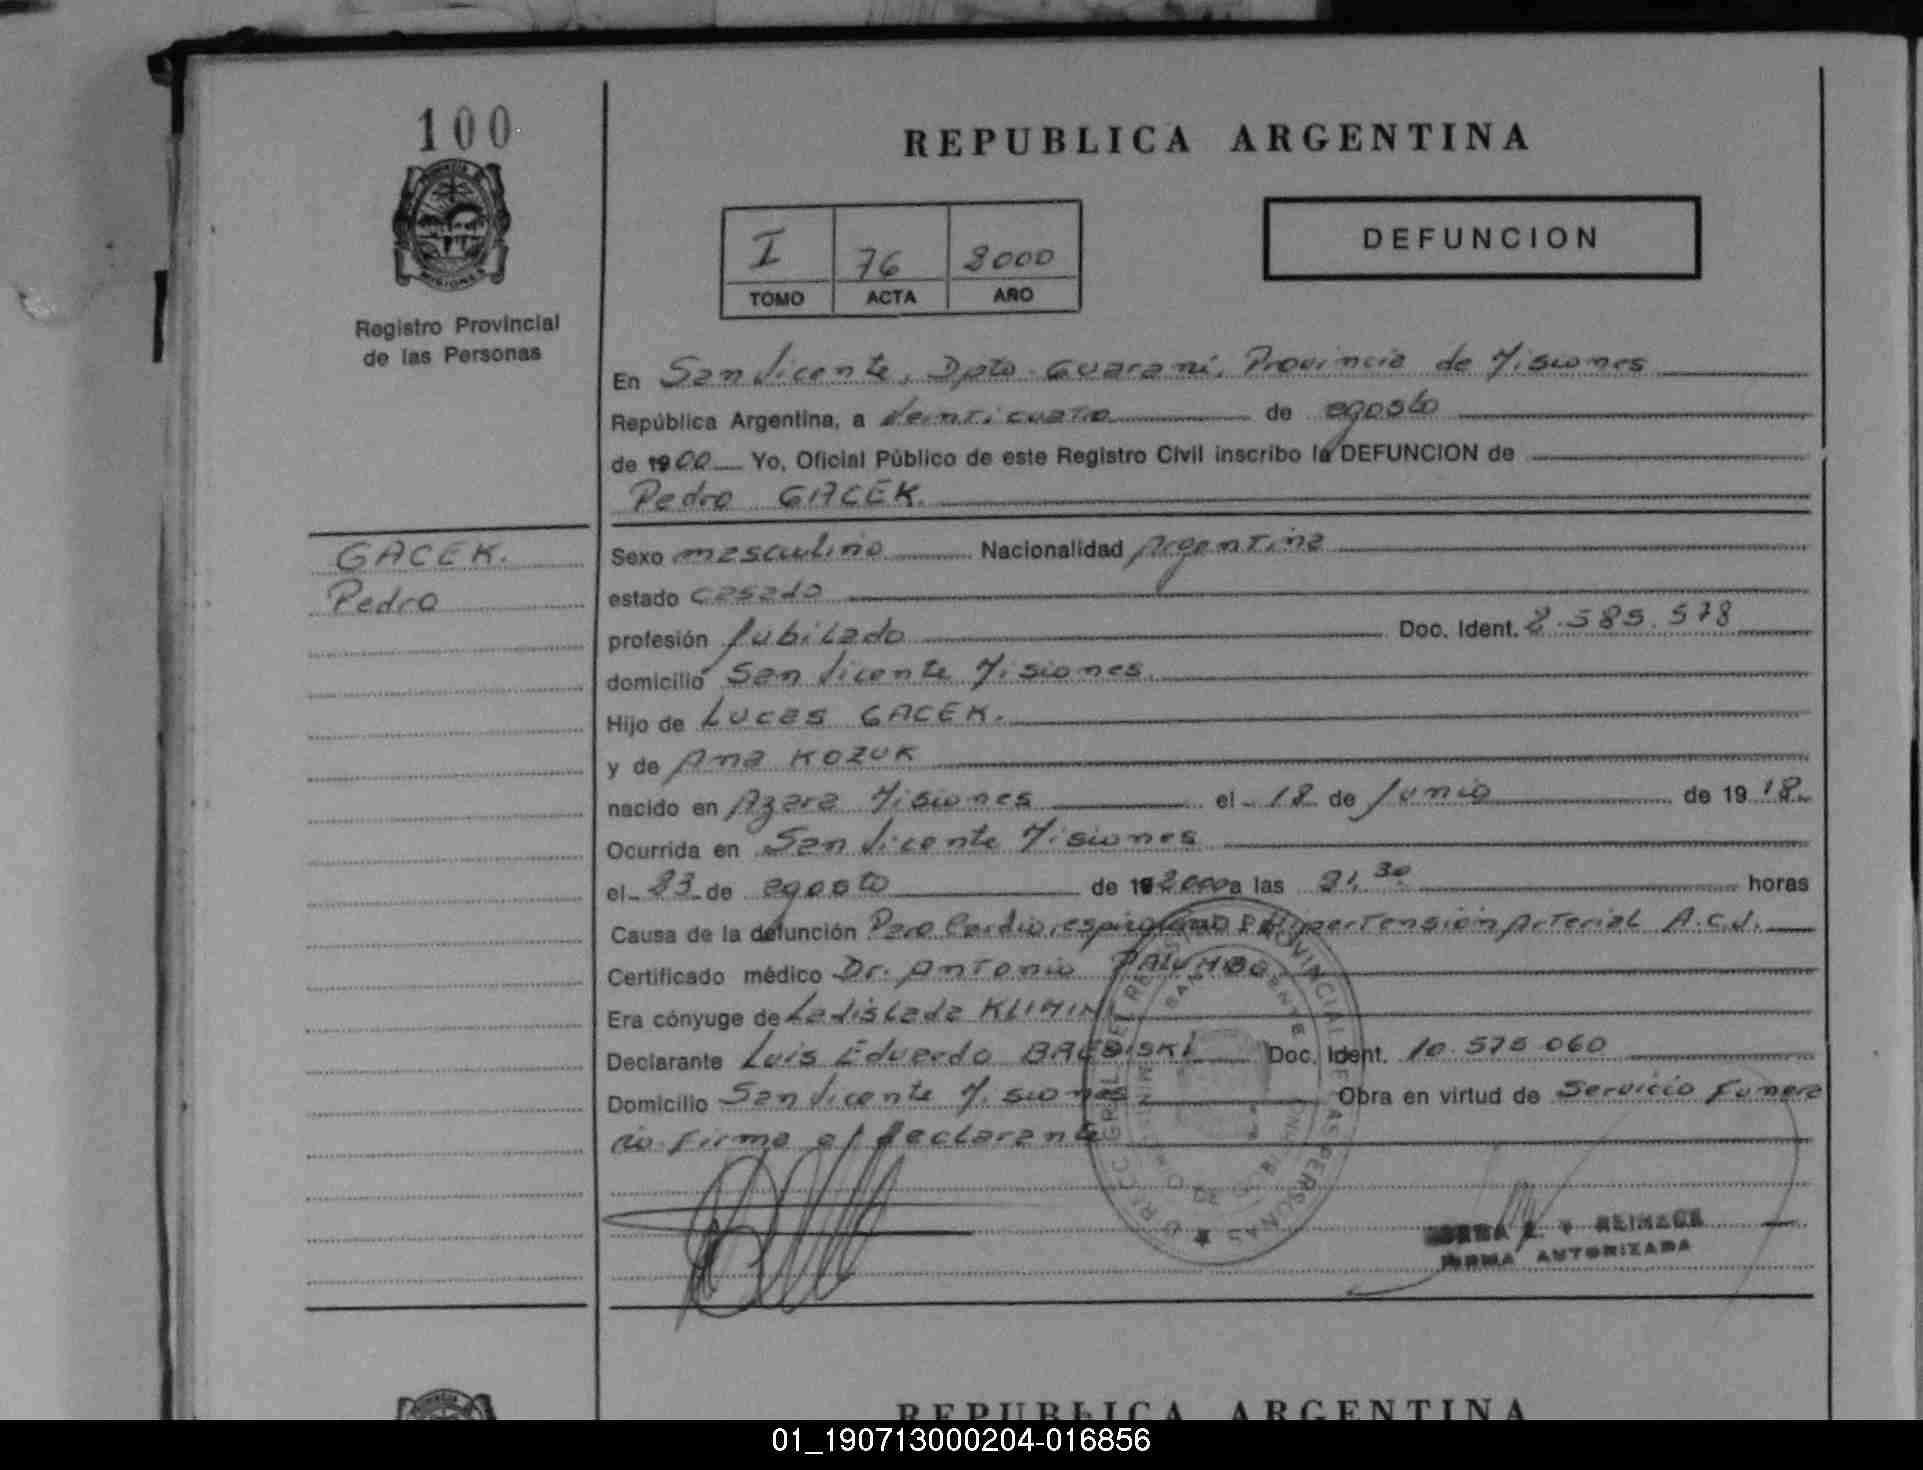 100
REPUBLICA ARGENTINA
DEFUNCION
I 76 2000
TOMO ACTA AÑO
Registro Provincial
de las Personas
En San Vicente, Dpto. Guaraní, Provincia de Misiones
República Argentina, a Veinticuatro de agosto
de 1900 Yo, Oficial Público de este Registro Civil inscribo la DEFUNCION de
Pedro GACEK.
GACEK.
Pedro
Sexo masculino Nacionalidad Argentina
estado casado
profesión Jubilado Doc. Ident. 2.585.578
domicilio San Vicente Misiones.
Hijo de Lucas GACEK.
y de Ana KOZUK
nacido en Azara Misiones el 18 de Junio de 1918.
Ocurrida en San Vicente Misiones
el 23 de agosto de 2000 a las 21,30 horas
Causa de la defunción Paro Cardio respiratorio Hipertensión Arterial A.C.V.
Certificado médico Dr. Antonio PALUMBO
Era cónyuge de Ladislada
Declarante Luis Eduardo Doc. Ident. 10.575.060
Domicilio San Vicente Misiones Obra en virtud de Servicio Funera
rio firma el declarante
DIREC. GRAL. DEL REGISTRO PROVINCIAL DE LAS PERSONAS
SAN VICENTE
MISIONES
FIRMA AUTORIZADA
REPUBLICA ARGENTINA
01_190713000204-016856